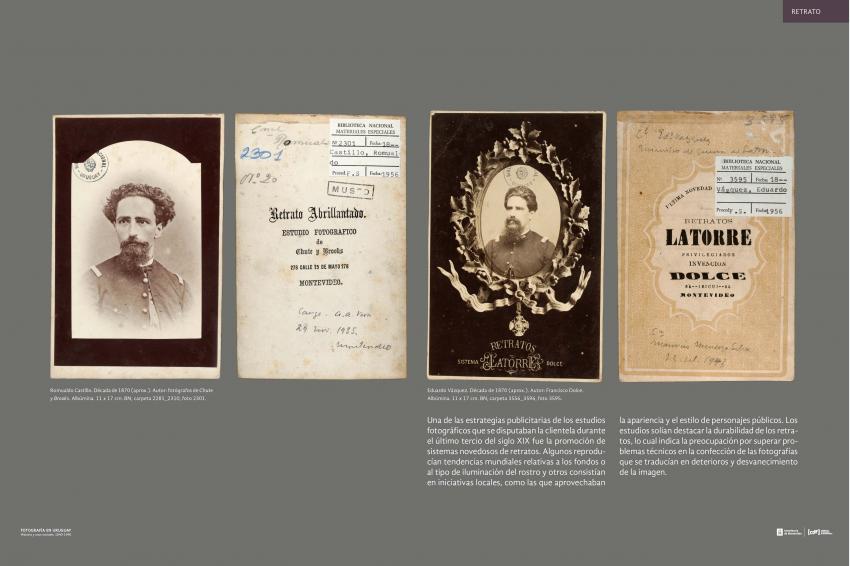 RETRATO
BIBLIOTECA NACIONAL
MATERIALES ESPECIALES
Nº 2301 Fecha 18--
Castillo, Romual-
do
Proced F.S Fecha 1956
MUSEO
Romual
2301
Nº 20
Retrato Abrillantado.
ESTUDIO FOTOGRAFICO
de
Chute y Brooks
278 CALLE 25 DE MAYO 278
MONTEVIDEO.
Canje
RETRATOS
SISTEMA LATORRE DOLCE
3595
BIBLIOTECA NACIONAL
MATERIALES ESPECIALES
Nº 3595 Fecha 18--
Vázquez, Eduardo
Proced F.S. Fecha 1956
ULTIMA NOVEDAD
RETRATOS
LATORRE
PRIVILEGIADOS
INVENCION
DOLCE
MONTEVIDEO
Romualdo Castillo. Década de 1870 (aprox.). Autor: fotógrafos de Chute
y Brooks. Albúmina. 11 x 17 cm. BN, carpeta 2281_2310, foto 2301.
Eduardo Vázquez. Década de 1870 (aprox.). Autor: Francisco Dolce.
Albúmina. 11 x 17 cm. BN, carpeta 3556_3596, foto 3595.
Una de las estrategias publicitarias de los estudios
fotográficos que se disputaban la clientela durante
el último tercio del siglo XIX fue la promoción de
sistemas novedosos de retratos. Algunos reprodu-
cían tendencias mundiales relativas a los fondos o
al tipo de iluminación del rostro y otros consistían
en iniciativas locales, como las que aprovechaban
la apariencia y el estilo de personajes públicos. Los
estudios solían destacar la durabilidad de los retra-
tos, lo cual indica la preocupación por superar pro-
blemas técnicos en la confección de las fotografías
que se traducían en deterioros y desvanecimiento
de la imagen.
FOTOGRAFÍA EN URUGUAY